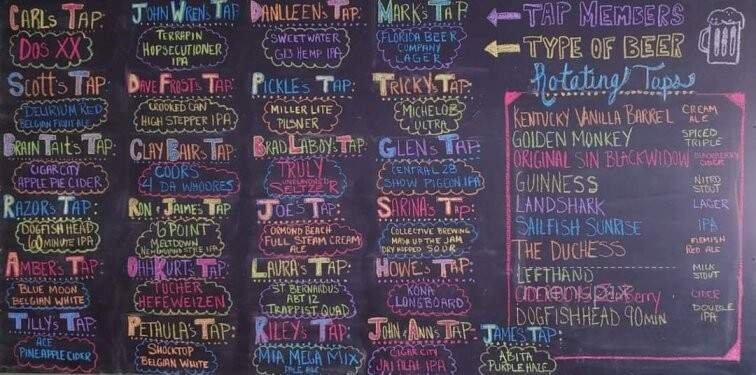 CARL'S TAP:
DOS XX
JOHN WREN'S TAP
TERRAPIN
HOPSECUTIONER
IPA
DANLLEEN'S TAP:
SWEETWATER
G13 HEMP IPA
MARK'S TAP
FLORIDA BEER
COMPANY
LAGER
TAP MEMBERS
TYPE OF BEER
SCOTT'S TAP:
DELIRIUM RED
BELGIAN FRUIT ALE
DAVE FROST'S TAP:
CROOKED CAN
HIGH STEPPER IPA
PICKLE'S TAP:
MILLER LITE
PILSNER
TRICKY'S TAP:
MICHELOB
ULTRA
BRAIN TAIT'S TAP:
CIGAR CITY
APPLE PIE CIDER
CLAY BAIR'S TAP:
COORS
4 DA WHOORES
BRAD LABOY'S TAP:
TRULY
SELTZER
GLEN'S TAP:
CENTRAL 28
SHOW PIGEON IPA
RAZOR'S TAP:
DOGFISH HEAD
60 MINUTE IPA
RON & JAIME'S TAP:
6 POINT
MELTDOWN
NEW ENGLAND STYLE IPA
JOE'S TAP:
ORMOND BEACH
FULL STEAM CREAM
ALE
SARINA'S TAP:
COLLECTIVE BREWING
MASH UP THE JAM
DRY HOPPED SOUR
AMBER'S TAP:
BLUE MOON
BELGIAN WHITE
OHHKURT'S TAP:
TUCHER
HEFEWEIZEN
LAURA'S TAP:
ST BERNARDUS
ABT 12
TRAPPIST QUAD
HOWE'S TAP:
KONA
LONGBOARD
TILLY'S TAP:
ACE
PINEAPPLE CIDER
PETHULA'S TAP:
SHOCKTOP
BELGIAN WHITE
RILEY'S TAP:
MIA MEGA MIX
PALE ALE
JOHN & ANN'S TAP:
CIGAR CITY
JAI ALAI IPA
JAMES TAP:
ABITA
PURPLE HAZE
Rotating Taps
KENTUCKY VANILLA BARREL CREAM ALE
GOLDEN MONKEY SPICED TRIPLE
ORIGINAL SIN BLACKWIDOW BLACKBERRY CIDER
GUINNESS NITRO STOUT
LANDSHARK LAGER
SAILFISH SUNRISE IPA
THE DUCHESS FLEMISH RED ALE
LEFTHAND MILK STOUT
CIDERBOYS Berry CIDER
DOGFISHHEAD 90 MIN DOUBLE IPA